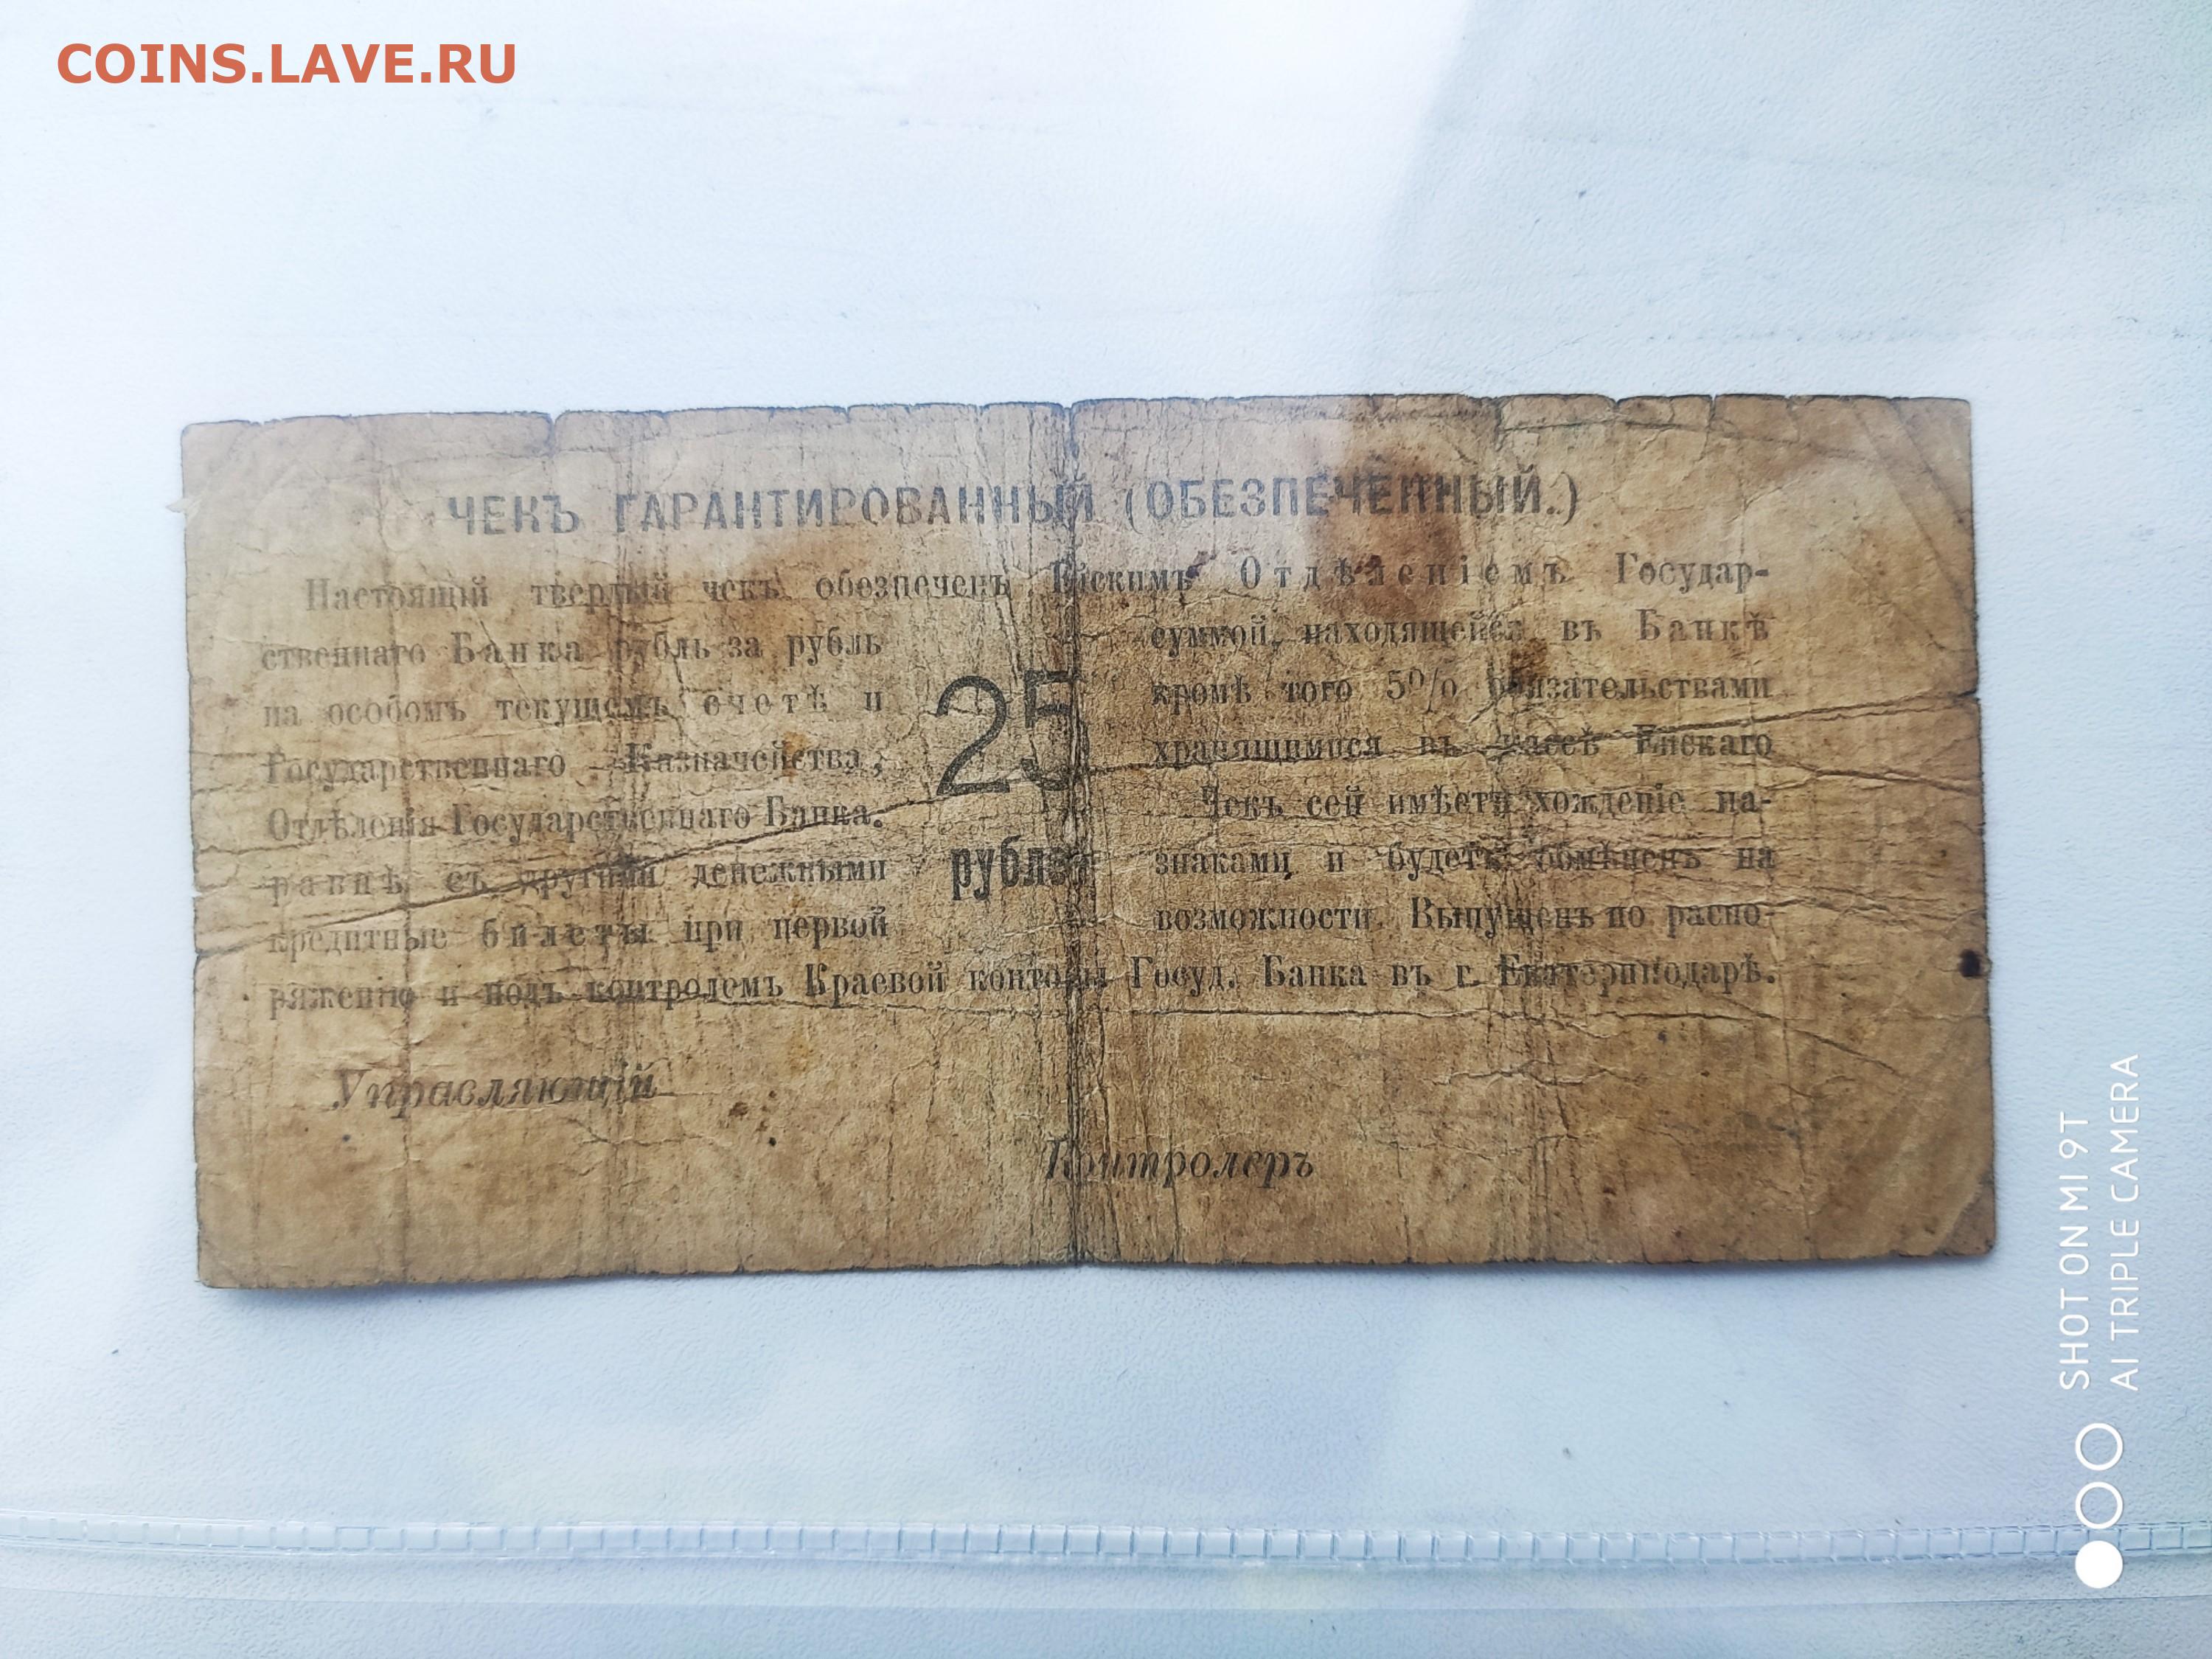 COINS.LAVE.RU
ЧЕКЪ ГАРАНТИРОВАННЫЙ (ОБЕЗПЕЧЕННЫЙ.)
Настоящій твердый чекъ обезпеченъ Ейскимъ Отдѣленіемъ Государ-
ственнаго Банка рубль за рубль суммой, находящейся въ Банкѣ
на особомъ текущемъ счетѣ и кромѣ того 5% обязательствами
Государственнаго Казначейства, хранящимися въ кассѣ Ейскаго
Отдѣленія Государственнаго Банка. Чекъ сей имѣетъ хожденіе на-
равнѣ съ другими денежными знаками и будетъ обмѣненъ на
кредитные билеты при первой возможности. Выпущенъ по распо-
ряженію и подъ контролемъ Краевой конторы Госуд. Банка въ г. Екатеринодарѣ.
25
рублей
Управляющій
Контролеръ
SHOT ON MI 9T
AI TRIPLE CAMERA